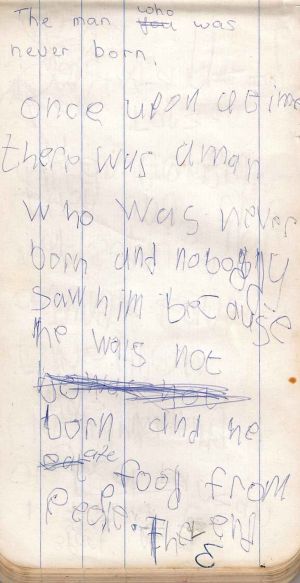 The man who was
never born.
once upon a time
there was a man
who was never
born and nobody
saw him because
he was not
born and he
ate food from
People. The end